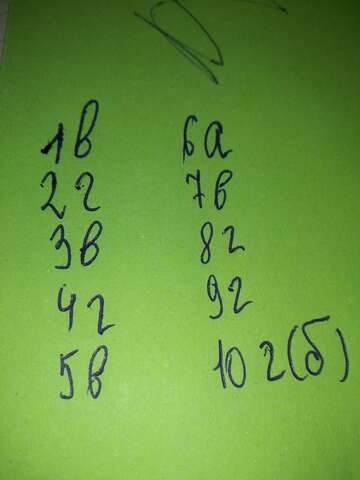 1в
2г
3в
4г
5в
6а
7в
8г
9г
10г(б)